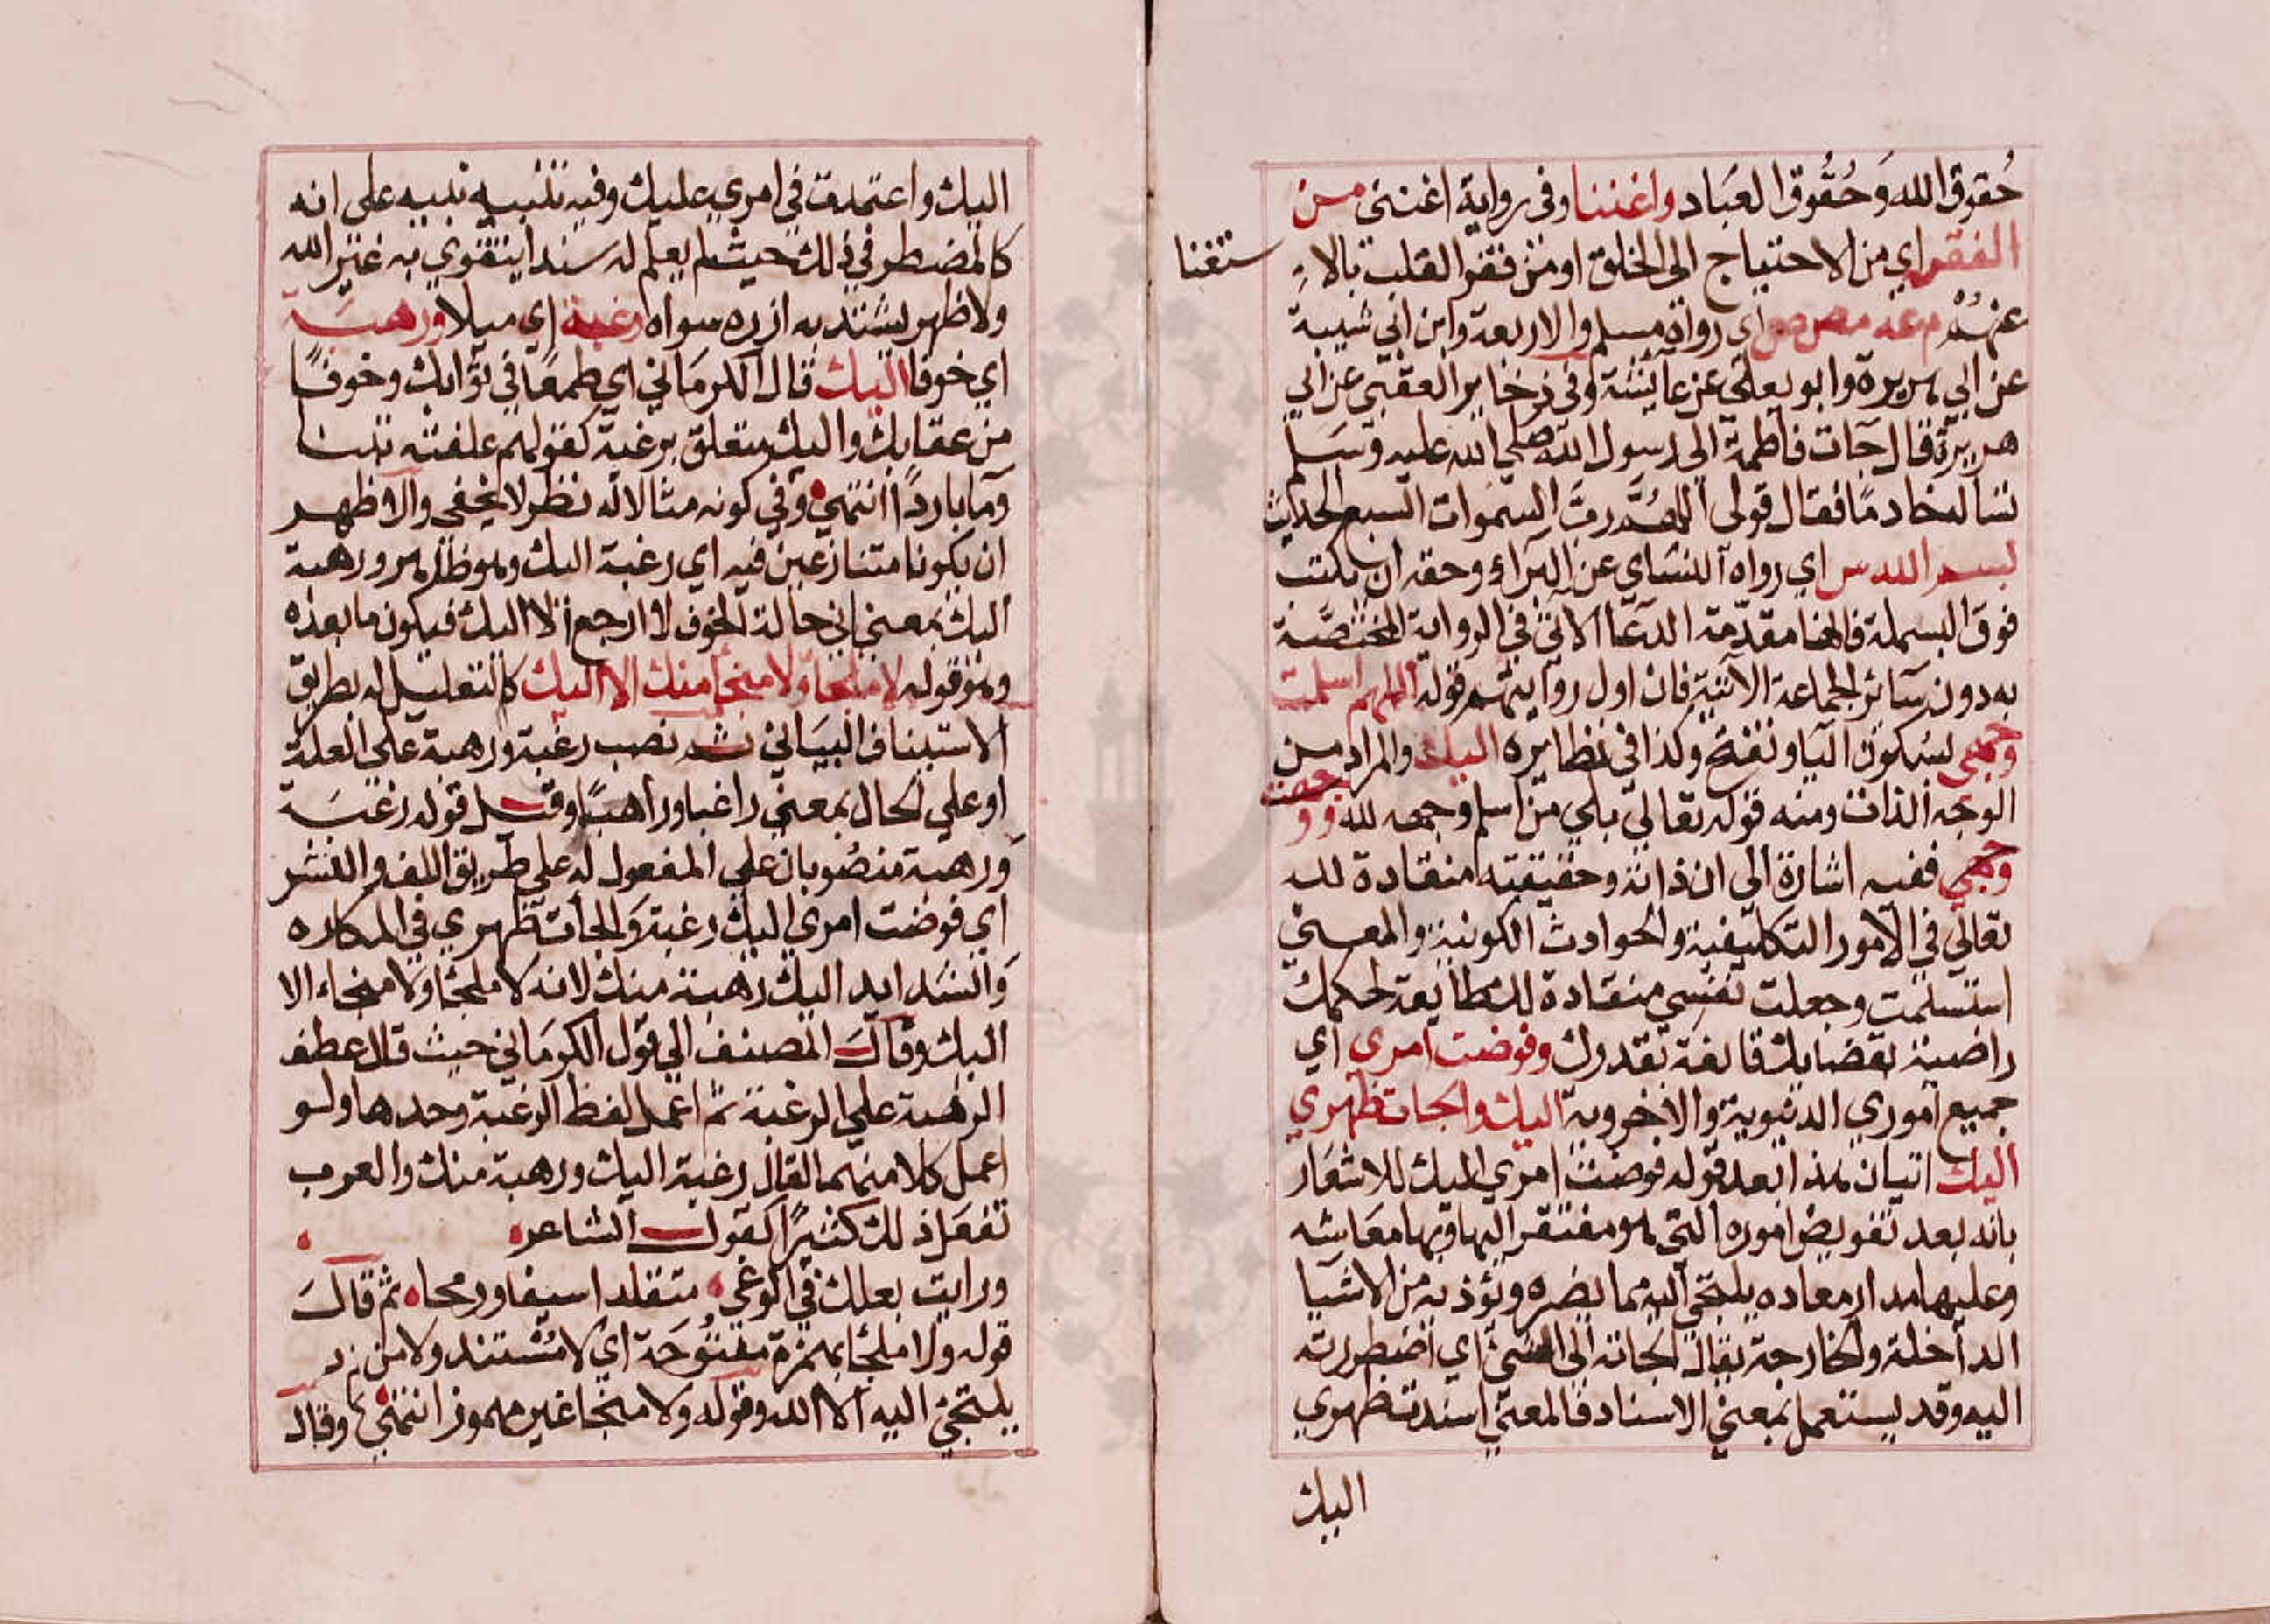 حُقوق الله وَحُقُوق العَباد واغننا وفى رواية اغننى من
الفقر اي من الاحتياج الى الخلق او من فقر القلب بالا
ستغنا
عنهُمْ م عه مص ص اي رواه مسلم والاربعة وابن ابي شيبة
عن ابي هريرة وابو يعلى عن عايشة وفى ذخاير العقبى عن ابي
هريرة قال جات فاطمة الى رسول الله صلى الله عليه وسلم
تسأله خادمًا فقال قولى اللهم رب السموات السبع الحديث
بسم الله س اي رواه النساي عن البراء وحقه ان يكتب
فوق البسملة فانها مقدّمة الدعا الاتى في الرواية المختصّة
به دون سائر الجماعة الآتية فان اول روايتهم قوله اللهم اسلمت
وجهى بسكون اليا وتفتح وكذا فى نظايره اليك والمراد من
الوجه الذات ومنه قوله تعالى بلى من اسلم وجهه لله ووجهت
وجهي ففيه اشارة الى ان ذاته وحقيقته منقادة لله
تعالى في الامور التكليفية والحوادث الكونية والمعنى
استسلمت وجعلت نفسي منقادة لك طايعة لحكمك
راضية بقضايك قانعة بقدرك وفوضت امري اي
جميع اموري الدنيوية والاخروية اليك والجات ظهري
اليك اتيان هذا بعد قوله فوضت امري اليك للاشعار
بانه بعد تفويض اموره التى هو مفتقر اليها وبها معاشه
وعليها مدار معاده يلتجي اليه مما يضره ويؤذيه من الاشيا
الداخلة والخارجة يقال الجاته الى الشئ اي اضطررته
اليه وقد يستعمل بمعنى الاسناد فالمعنى اسندت ظهري
اليك
اليك واعتمدت في امري عليك وفيه تنبيه نبيه على انه
كالمضطر في ذلك حيث لم يعلم له سندا يتقوي به غير الله
ولا ظهر يشتد به ازره سواه رغبة اي ميلا ورهبة
اي خوفا اليك قال الكرماني اي طمعًا في ثوابك وخوفًا
من عقابك واليك متعلق برغبة كقولهم علفته تبنا
وما باردًا انتهي وفي كونه مثالا له نظر لا يخفى والاظهر
ان يكونا متنازعين فيه اي رغبة اليك وهو ظاهر ورهبة
اليك بمعنى اني حالة الخوف لا ارجع الا اليك فيكون ما بعده
وهو قوله لا ملجا ولا منجا منك الا اليك كالتعليل له بطريق
الاستيناف البياني ثم نصب رغبة ورهبة على العلة
او على الحال بمعنى راغبا وراهبًا وقيل قوله رغبة
ورهبة منصُوبان على المفعول له على طريق اللف والنشر
اي فوضت امري اليك رغبة والجات ظهري في المكاره
والشدايد اليك رهبة منك لانه لا ملجا ولا منجاء الا
اليك وقال المصنف الى قول الكرماني حيث قال عطف
الرهبة على الرغبة ثم اعمل لفظ الرغبة وحدها ولو
اعمل كلا منهما لقال رغبة اليك ورهبة منك والعرب
تفعل ذلك كثيرًا كقول الشاعر
ورايت بعلك في الوغى متقلدا سيفا ورمحا ثم قال
قوله ولا ملجا بهمزة مفتُوحَة اي لا مُسْتند ولا من
يلتجئ اليه الا الله وقوله ولا منجا غير مهموز انتهى وقال